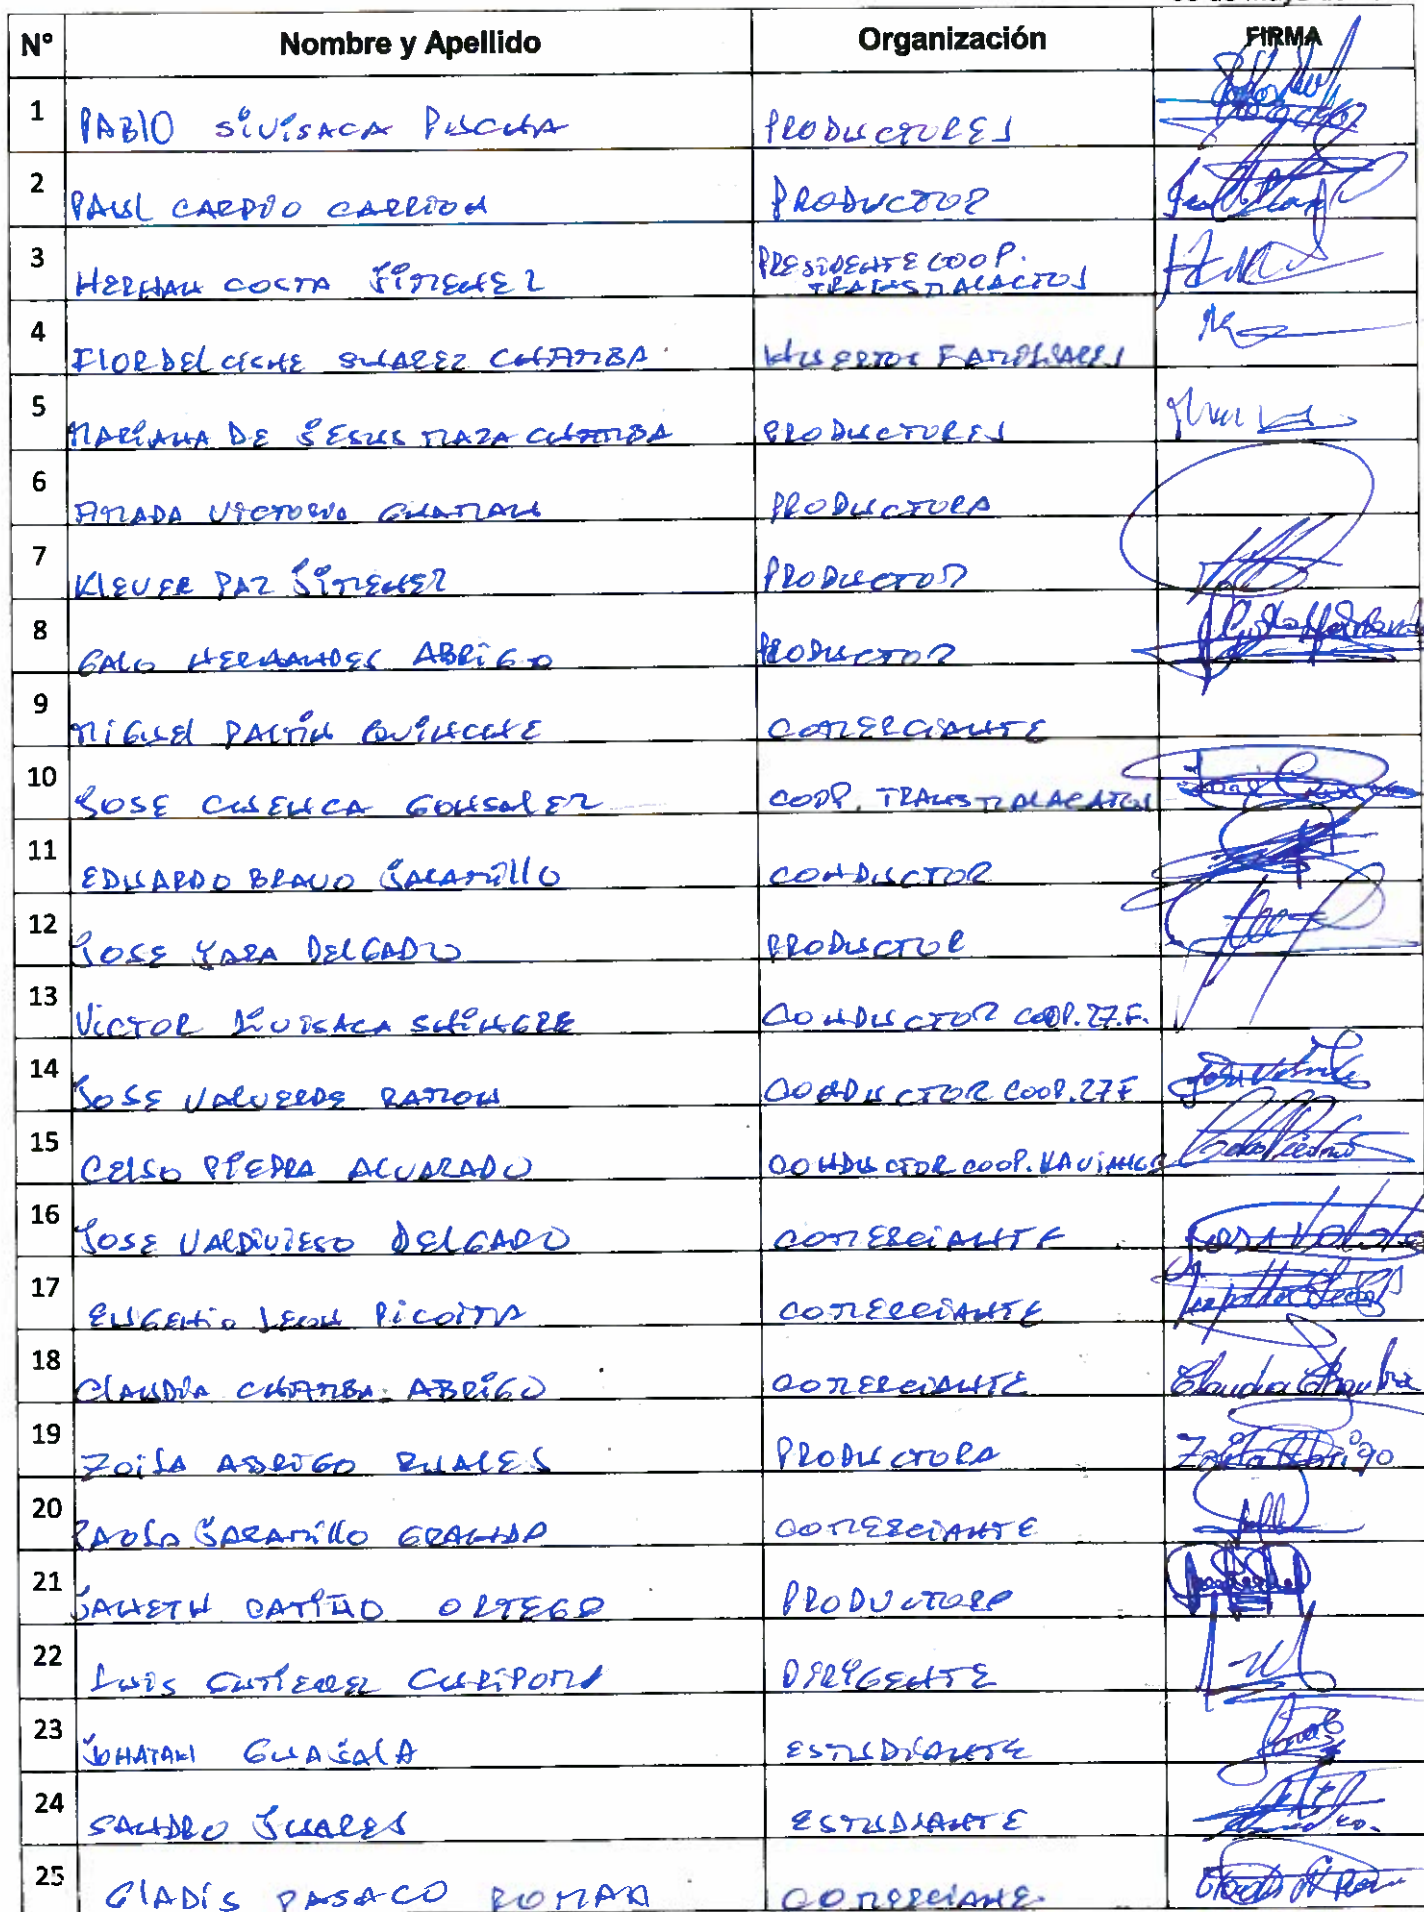 Nº Nombre y Apellido Organización FIRMA
1 PABLO SIVISACA PUCHA PRODUCTORES
2 PAUL CARPIO CARRION PRODUCTOR
3 HERNAN COSTA JIMENEZ PRESIDENTE COOP. TRANSMALACTOS
4 FLOR DEL CISNE SUAREZ CHAMBA HUERTOS FAMILIARES
5 MARIANA DE JESUS MAZA CHAMBA PRODUCTORES
6 AMADA VICTORIA GUAMAN PRODUCTORA
7 KLEVER PAZ JIMENEZ PRODUCTOR
8 GALO HERNANDES ABRIGO PRODUCTOR
9 MIGUEL PALTIN QUINCHE COMERCIANTE
10 JOSE CUENCA GONSALEZ COOP. TRANSMALACATOS
11 EDUARDO BRAVO JARAMILLO CONDUCTOR
12 JOSE JARA DELGADO PRODUCTOR
13 VICTOR SIVISACA SHINGRE CONDUCTOR COOP. 27.F.
14 JOSE VALVERDE RAMON CONDUCTOR COOP. 27F
15 CELSO PIEDRA ALVARADO CONDUCTOR COOP.
16 JOSE VALDIVIESO DELGADO COMERCIANTE
17 EUGENIO LEON PICOITA COMERCIANTE
18 CLAUDIA CHAMBA ABRIGO COMERCIANTE Claudia Chamba
19 ZOILA ABRIGO RUALES PRODUCTORA Zoila Abrigo
20 PAOLA JARAMILLO GRANDA COMERCIANTE
21 JANETH PATIÑO ORTEGA PRODUCTORA
22 LUIS GUTIEREZ CURIPOMA DIRIGENTE
23 JOHATAN GUAJALA ESTUDIANTE
24 SANDRO JUARES ESTUDIANTE
25 GLADIS PASACO ROMAN COMERCIANE.